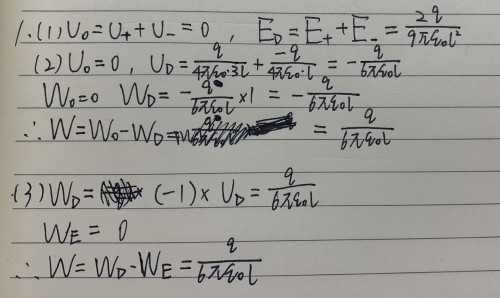 1.(1) U₀ = U₊ + U₋ = 0 , E_D = E₊ + E₋ = 2q/9πε₀l²
(2) U₀ = 0 , U_D = q/4πε₀·3l + -q/4πε₀·l = -q/6πε₀l
W₀ = 0 W_D = -q/6πε₀l × 1 = -q/6πε₀l
∴ W = W₀ - W_D = = q/6πε₀l
(3) W_D = (-1) × U_D = q/6πε₀l
W_E = 0
∴ W = W_D - W_E = q/6πε₀l